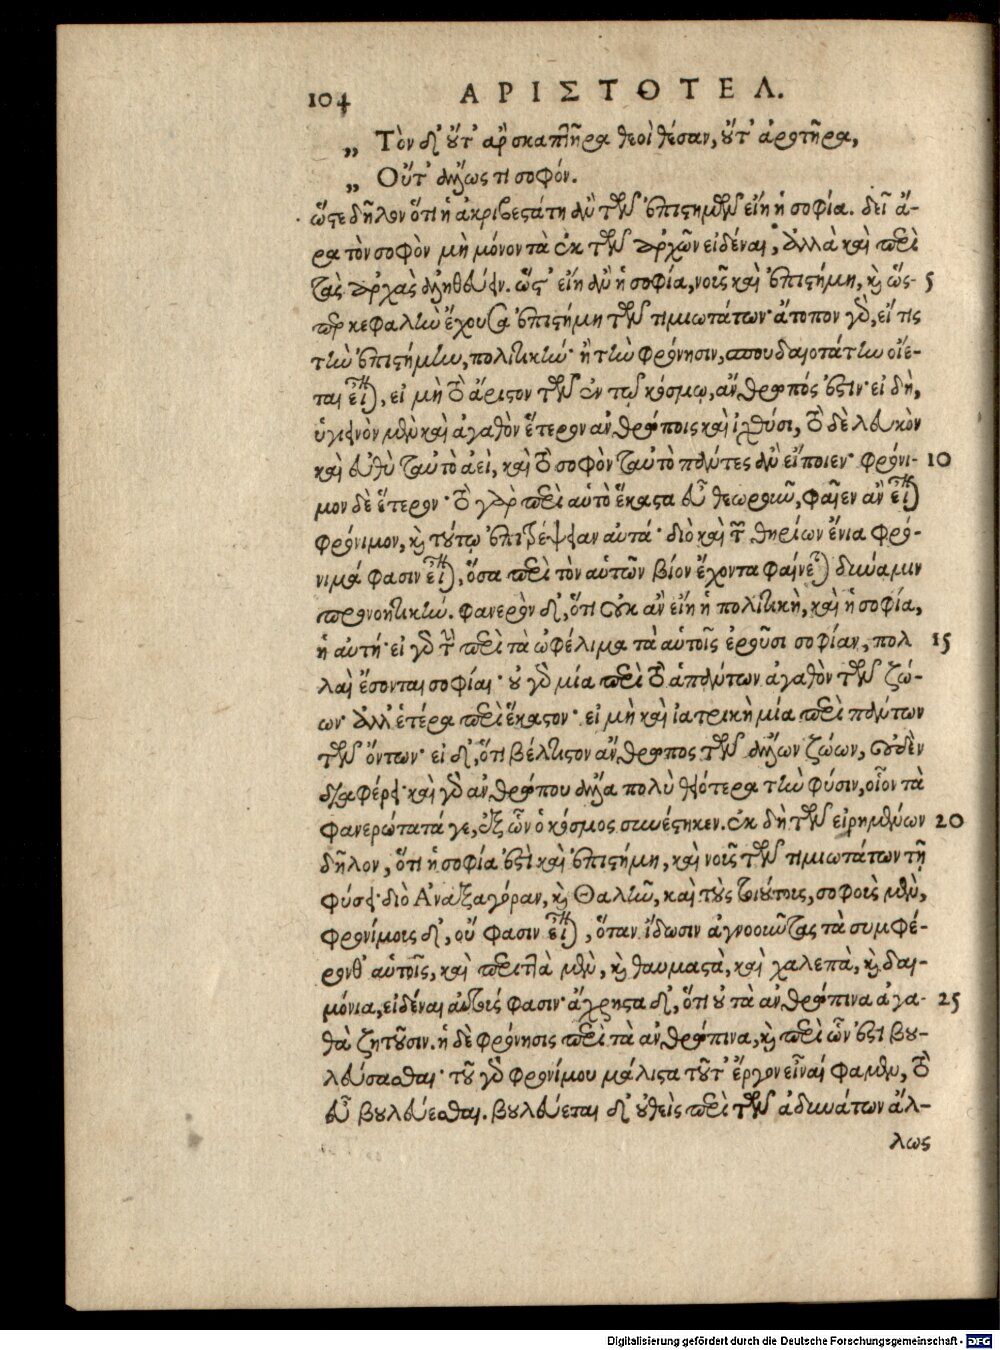 104 ΑΡΙΣΤΟΤΕΛ.
„ Τὸν δ' οὔτ' ἂρ σκαπτῆρα θεοὶ θέσαν, οὔτ' ἀροτῆρα,
„ Οὔτ' ἄλλως τι σοφόν.
ὥστε δῆλον ὅτι ἡ ἀκριβεστάτη ἂν τῶν ἐπιστημῶν εἴη ἡ σοφία. δεῖ ἄ-
ρα τὸν σοφὸν μὴ μόνον τὰ ἐκ τῶν ἀρχῶν εἰδέναι, ἀλλὰ καὶ περὶ
τὰς ἀρχὰς ἀληθεύειν. ὥστ' εἴη ἂν ἡ σοφία, νοῦς καὶ ἐπιστήμη, καὶ ὥσ- 5
περ κεφαλὴν ἔχουσα ἐπιστήμη τῶν τιμιωτάτων· ἄτοπον γὰρ, εἴ τις
τὴν ἐπιστήμην, πολιτικὴν· ἢ τὴν φρόνησιν, σπουδαιοτάτην οἴε-
ται εἶναι, εἰ μὴ τὸ ἄριστον τῶν ἐν τῷ κόσμῳ, ἄνθρωπός ἐστιν· εἰ δὴ,
ὑγιεινὸν μὲν καὶ ἀγαθὸν ἕτερον ἀνθρώποις καὶ ἰχθύσι, τὸ δὲ λευκὸν
καὶ εὐθὺ ταὐτὸ ἀεὶ, καὶ τὸ σοφὸν ταὐτὸ πάντες ἂν εἴποιεν· φρόνι- 10
μον δὲ ἕτερον· τὸ γὰρ περὶ αὑτὸ ἕκαστα εὖ θεωροῦν, φαῖεν ἂν εἶναι
φρόνιμον, καὶ τούτῳ ἐπιτρέψειαν αὐτά· διὸ καὶ τῶν θηρίων ἔνια φρό-
νιμά φασιν εἶναι, ὅσα περὶ τὸν αὑτῶν βίον ἔχοντα φαίνεται δύναμιν
προνοητικήν. φανερὸν δ', ὅτι οὐκ ἂν εἴη ἡ πολιτικὴ, καὶ ἡ σοφία,
ἡ αὐτή· εἰ γὰρ τὴν περὶ τὰ ὠφέλιμα τὰ αὑτοῖς ἐροῦσι σοφίαν, πολ 15
λαὶ ἔσονται σοφίαι· οὐ γὰρ μία περὶ τὸ ἁπάντων ἀγαθὸν τῶν ζώ-
ων· ἀλλ' ἑτέρα περὶ ἕκαστον· εἰ μὴ καὶ ἰατρικὴ μία περὶ πάντων
τῶν ὄντων· εἰ δ', ὅτι βέλτιστον ἄνθρωπος τῶν ἄλλων ζώων, οὐδὲν
διαφέρει· καὶ γὰρ ἀνθρώπου ἄλλα πολὺ θειότερα τὴν φύσιν, οἷον τὰ
φανερώτατά γε, ἐξ ὧν ὁ κόσμος συνέστηκεν. ἐκ δὴ τῶν εἰρημένων 20
δῆλον, ὅτι ἡ σοφία ἐστὶ καὶ ἐπιστήμη, καὶ νοῦς τῶν τιμιωτάτων τῇ
φύσει· διὸ Ἀναξαγόραν, καὶ Θαλῆν, καὶ τοὺς τοιούτους, σοφοὺς μὲν,
φρονίμους δ', οὔ φασιν εἶναι, ὅταν ἴδωσιν ἀγνοοῦντας τὰ συμφέ-
ρονθ' αὑτοῖς, καὶ περιττὰ μὲν, καὶ θαυμαστὰ, καὶ χαλεπὰ, καὶ δαι-
μόνια, εἰδέναι αὐτούς φασιν· ἄχρηστα δ', ὅτι οὐ τὰ ἀνθρώπινα ἀγα- 25
θὰ ζητοῦσιν. ἡ δὲ φρόνησις περὶ τὰ ἀνθρώπινα, καὶ περὶ ὧν ἐστὶ βου-
λεύσασθαι· τοῦ γὰρ φρονίμου μάλιστα τοῦτ' ἔργον εἶναί φαμεν, τὸ
εὖ βουλεύεσθαι. βουλεύεται δ' οὐθεὶς περὶ τῶν ἀδυνάτων ἄλ-
λως
Digitalisierung gefördert durch die Deutsche Forschungsgemeinschaft - DFG